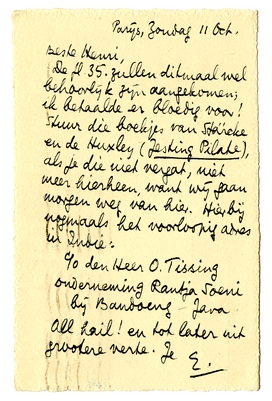 Parijs, Zondag 11 Oct.
Beste Henri,
De fl 35. zullen ditmaal wel
behoorlijk zijn aangekomen;
ik betaalde er bloedig voor!
Stuur die boekjes van Stärcke
en de Huxley (Jesting Pilate),
als je die niet vergat, niet
meer hierheen, want wij gaan
morgen weg van hier. Hierbij
nogmaals het voorloopig adres
in Indië:
c/o den Heer O. Tissing
onderneming Rantja Soeni
bij Bandoeng - Java
All hail! en tot later uit
grootere verte. Je
E.